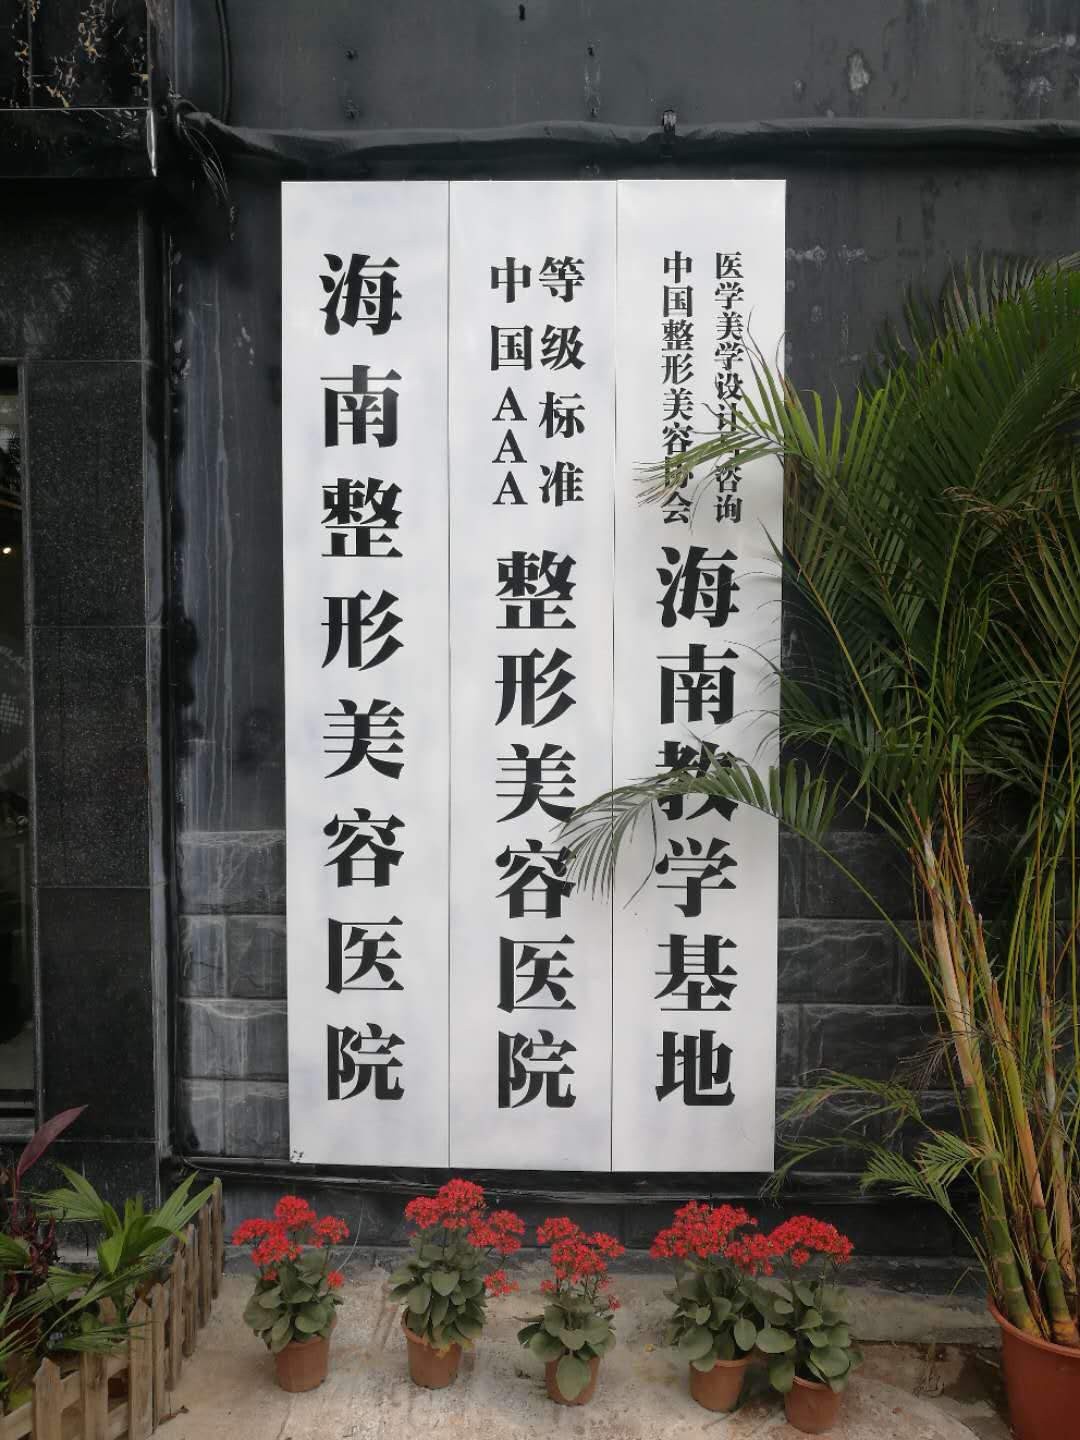 海南整形美容医院
中国AAA
等级标准
整形美容医院
中国整形美容协会
医学美学设计 咨询
海南教学基地